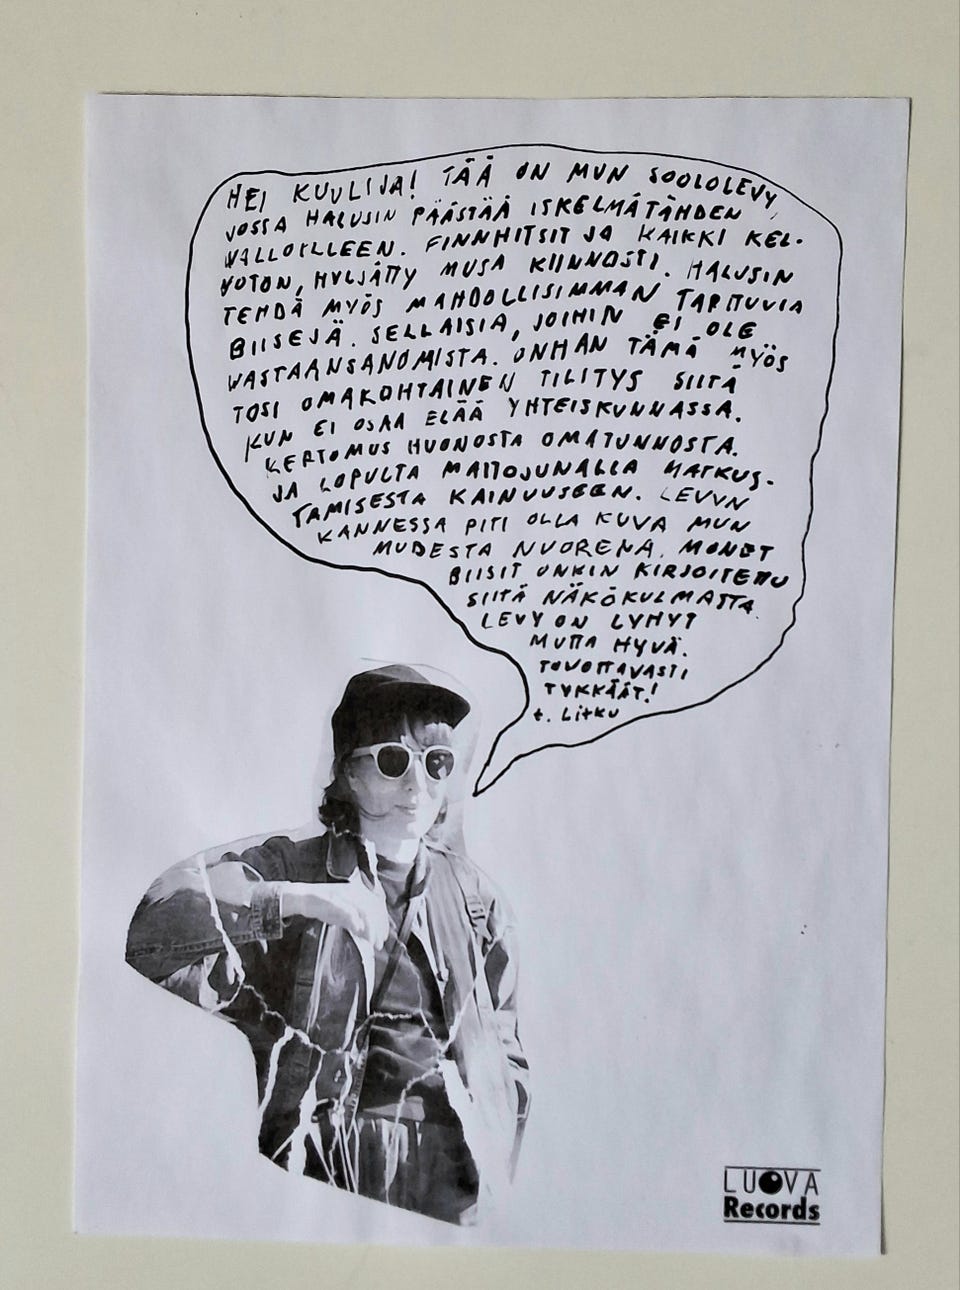 HEI KUULIJA! TÄÄ ON MUN SOOLOLEVY,
JOSSA HALUSIN PÄÄSTÄÄ ISKELMÄTÄHDEN
VALLOILLEEN. FINNHITSIT JA KAIKKI KEL-
VOTON, HYLJÄTTY MUSA KIINNOSTI. HALUSIN
TEHDÄ MYÖS MAHDOLLISIMMAN TARTTUVIA
BIISEJÄ. SELLAISIA, JOIHIN EI OLE
VASTAANSANOMISTA. ONHAN TÄMÄ MYÖS
TOSI OMAKOHTAINEN TILITYS SIITÄ
KUN EI OSAA ELÄÄ YHTEISKUNNASSA.
KERTOMUS HUONOSTA OMATUNNOSTA.
JA LOPULTA MAITOJUNALLA MATKUS-
TAMISESTA KAINUUSEEN. LEVYN
KANNESSA PITI OLLA KUVA MUN
MUDESTA NUORENA. MONET
BIISIT ONKIN KIRJOITETTU
SIITÄ NÄKÖKULMASTA.
LEVY ON LYHYT
MUTTA HYVÄ.
TOVOTTAVASTI
TYKKÄÄT!
t. Litku
LUOVA
Records